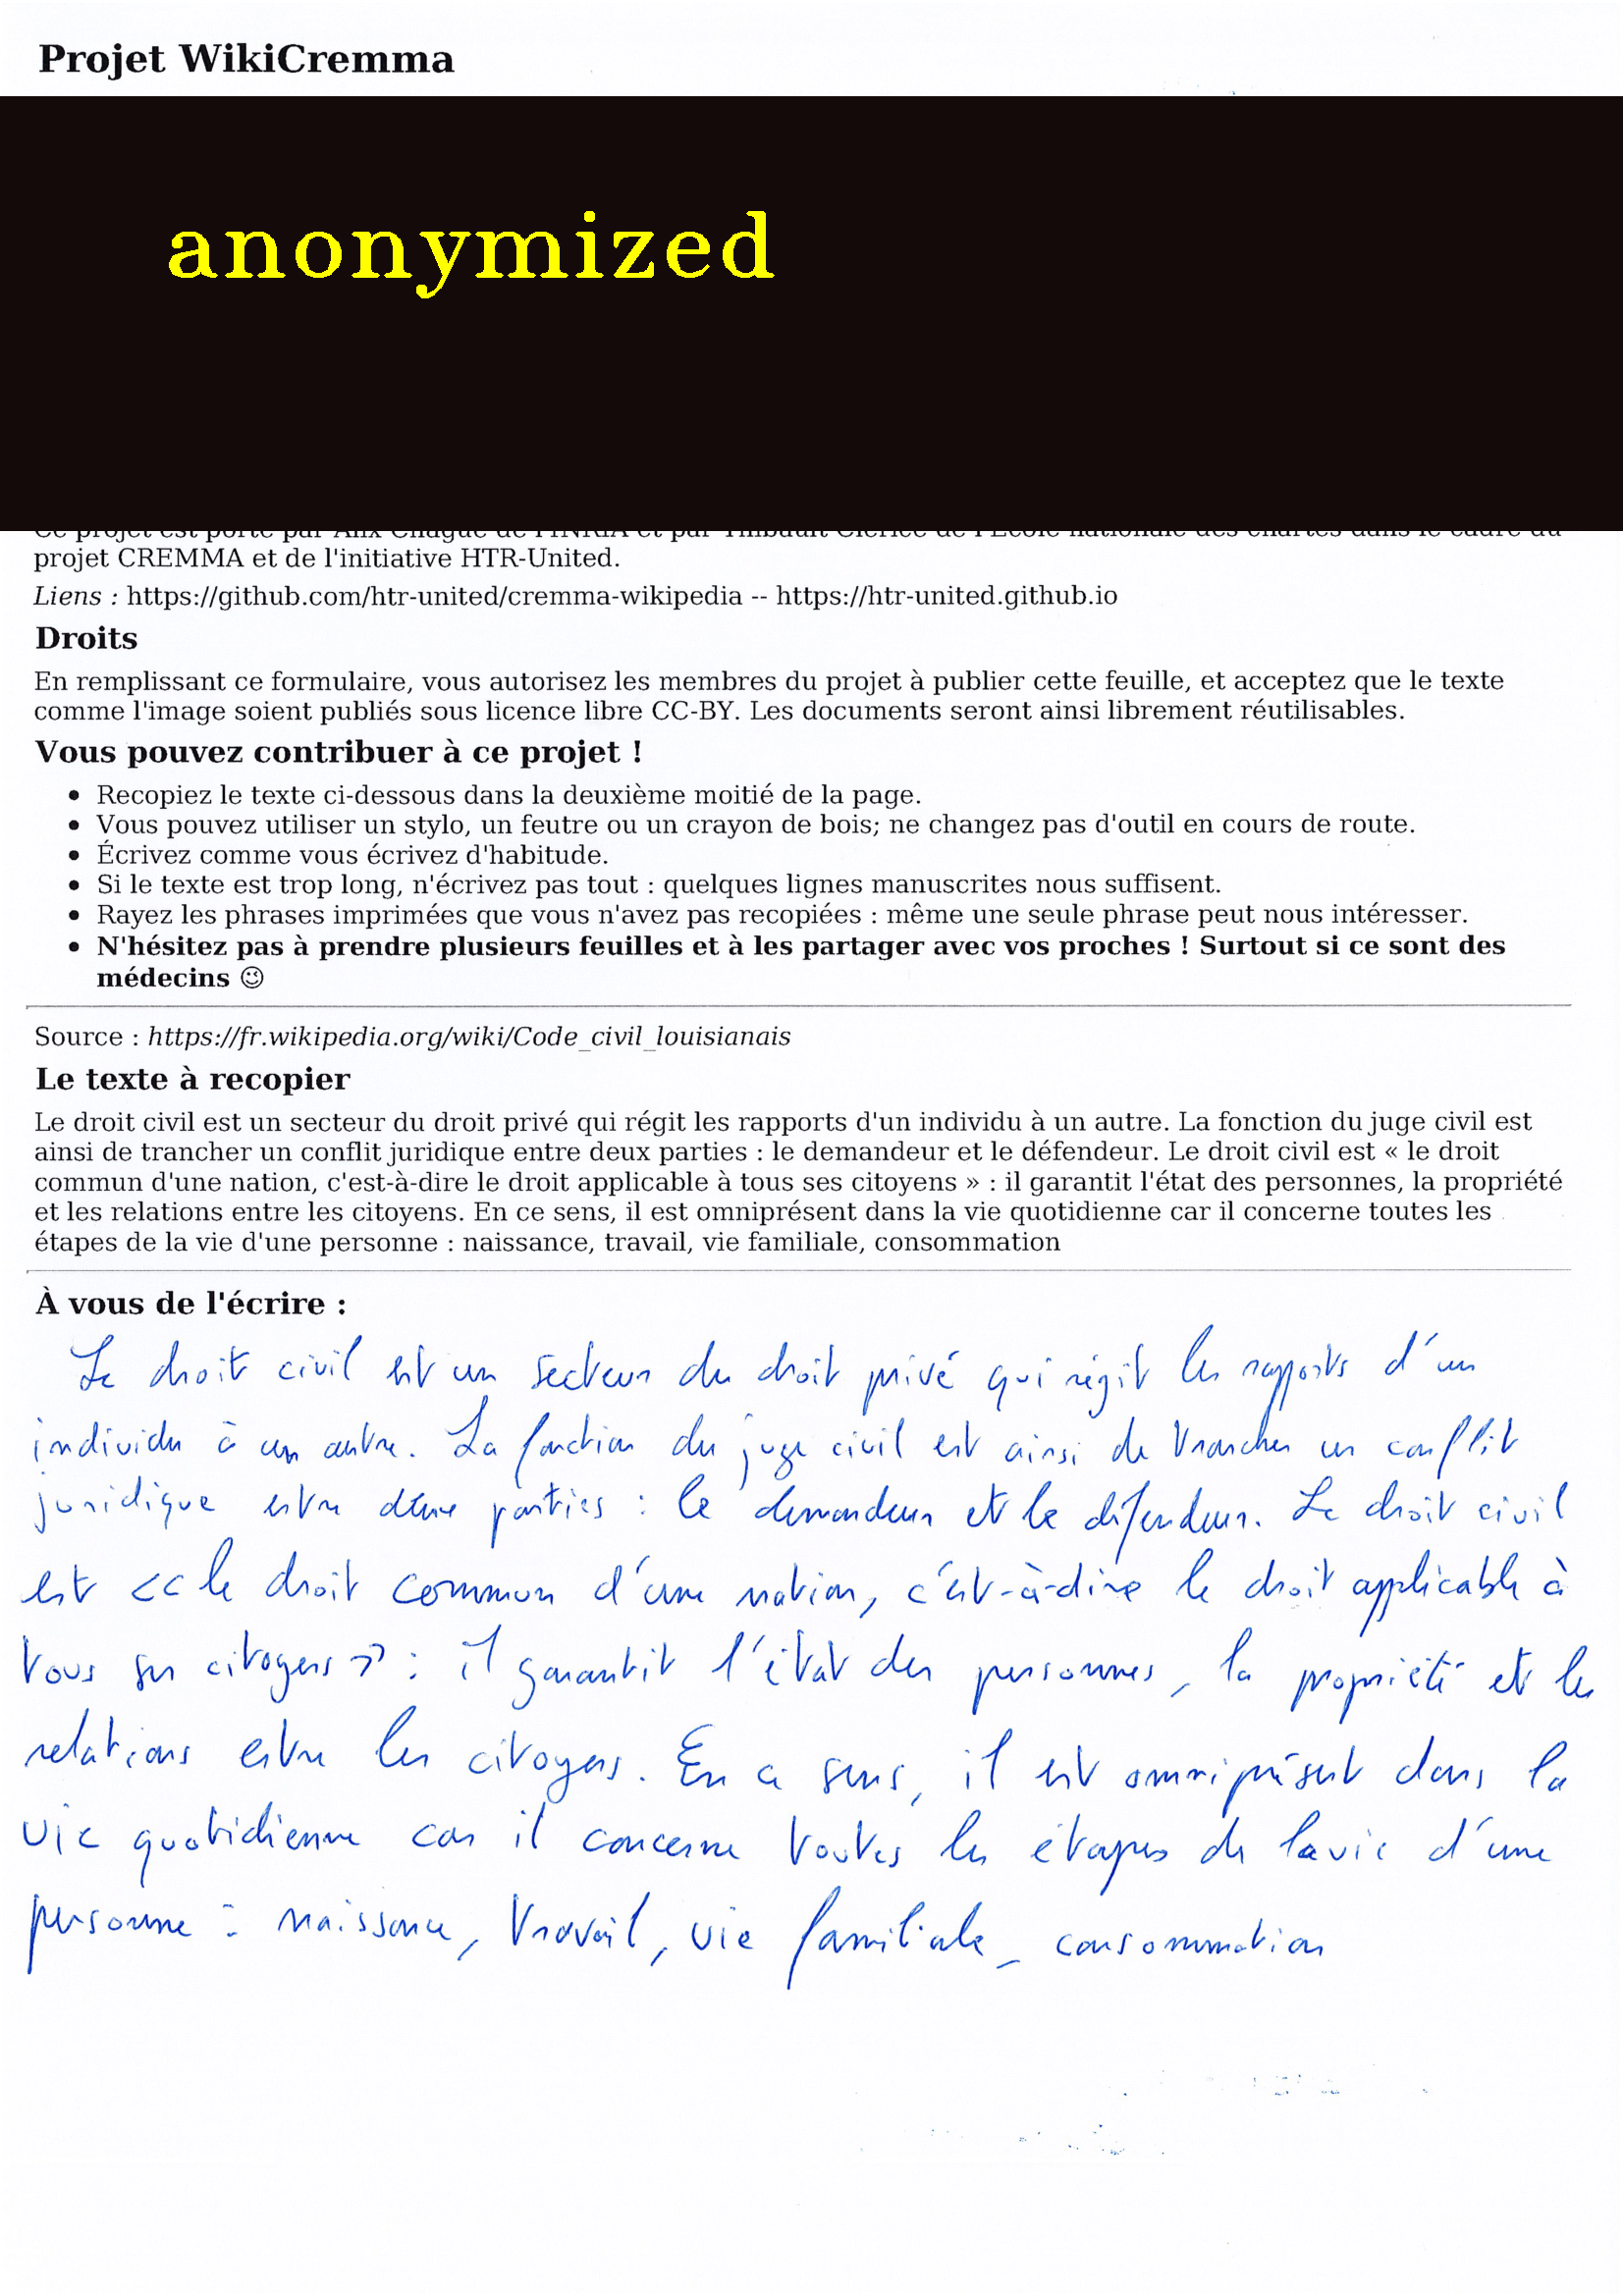 Projet WikiCremma
anonymized
Ce projet est porté par Alix Chagué de l'INRIA et par Thibault Clérice de l'École nationale des chartes dans le cadre du
projet CREMMA et de l'initiative HTR-United.
Liens : https://github.com/htr-united/cremma-wikipedia -- https://htr-united.github.io
Droits
En remplissant ce formulaire, vous autorisez les membres du projet à publier cette feuille, et acceptez que le texte
comme l'image soient publiés sous licence libre CC-BY. Les documents seront ainsi librement réutilisables.
Vous pouvez contribuer à ce projet !
• Recopiez le texte ci-dessous dans la deuxième moitié de la page.
• Vous pouvez utiliser un stylo, un feutre ou un crayon de bois; ne changez pas d'outil en cours de route.
• Écrivez comme vous écrivez d'habitude.
• Si le texte est trop long, n'écrivez pas tout : quelques lignes manuscrites nous suffisent.
• Rayez les phrases imprimées que vous n'avez pas recopiées : même une seule phrase peut nous intéresser.
• N'hésitez pas à prendre plusieurs feuilles et à les partager avec vos proches ! Surtout si ce sont des
médecins 😉
Source : https://fr.wikipedia.org/wiki/Code_civil_louisianais
Le texte à recopier
Le droit civil est un secteur du droit privé qui régit les rapports d'un individu à un autre. La fonction du juge civil est
ainsi de trancher un conflit juridique entre deux parties : le demandeur et le défendeur. Le droit civil est « le droit
commun d'une nation, c'est-à-dire le droit applicable à tous ses citoyens » : il garantit l'état des personnes, la propriété
et les relations entre les citoyens. En ce sens, il est omniprésent dans la vie quotidienne car il concerne toutes les
étapes de la vie d'une personne : naissance, travail, vie familiale, consommation
À vous de l'écrire :
Le droit civil est un secteur du droit privé qui régit les rapports d'un
individu à un autre. La fonction du juge civil est ainsi de trancher un conflit
juridique entre deux parties : le demandeur et le défendeur. Le droit civil
est << le droit commun d'une nation, c'est-à-dire le droit applicable à
tous ses citoyens >> : il garantit l'état des personnes, la propriété et les
relations entre les citoyens. En ce sens, il est omniprésent dans la
vie quotidienne car il concerne toutes les étapes de la vie d'une
personne : naissance, travail, vie familiale, consommation